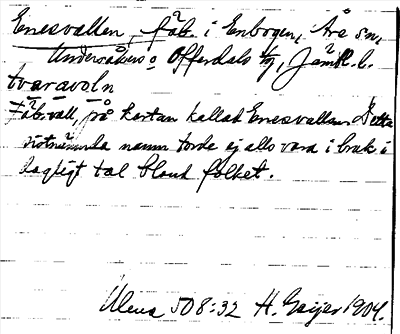 Enesvallen, fäb. i Enbogen, Åre sn,
Undersåkers o Offerdals tg, Jämtl. l.
tvaravoln
Fäbvall, på kartan kallad Enesvallen. Detta
sistnämnda namn torde ej alls vara i bruk i
dagligt tal bland folket.
Ulma 508:32 H. Geijer 1904.